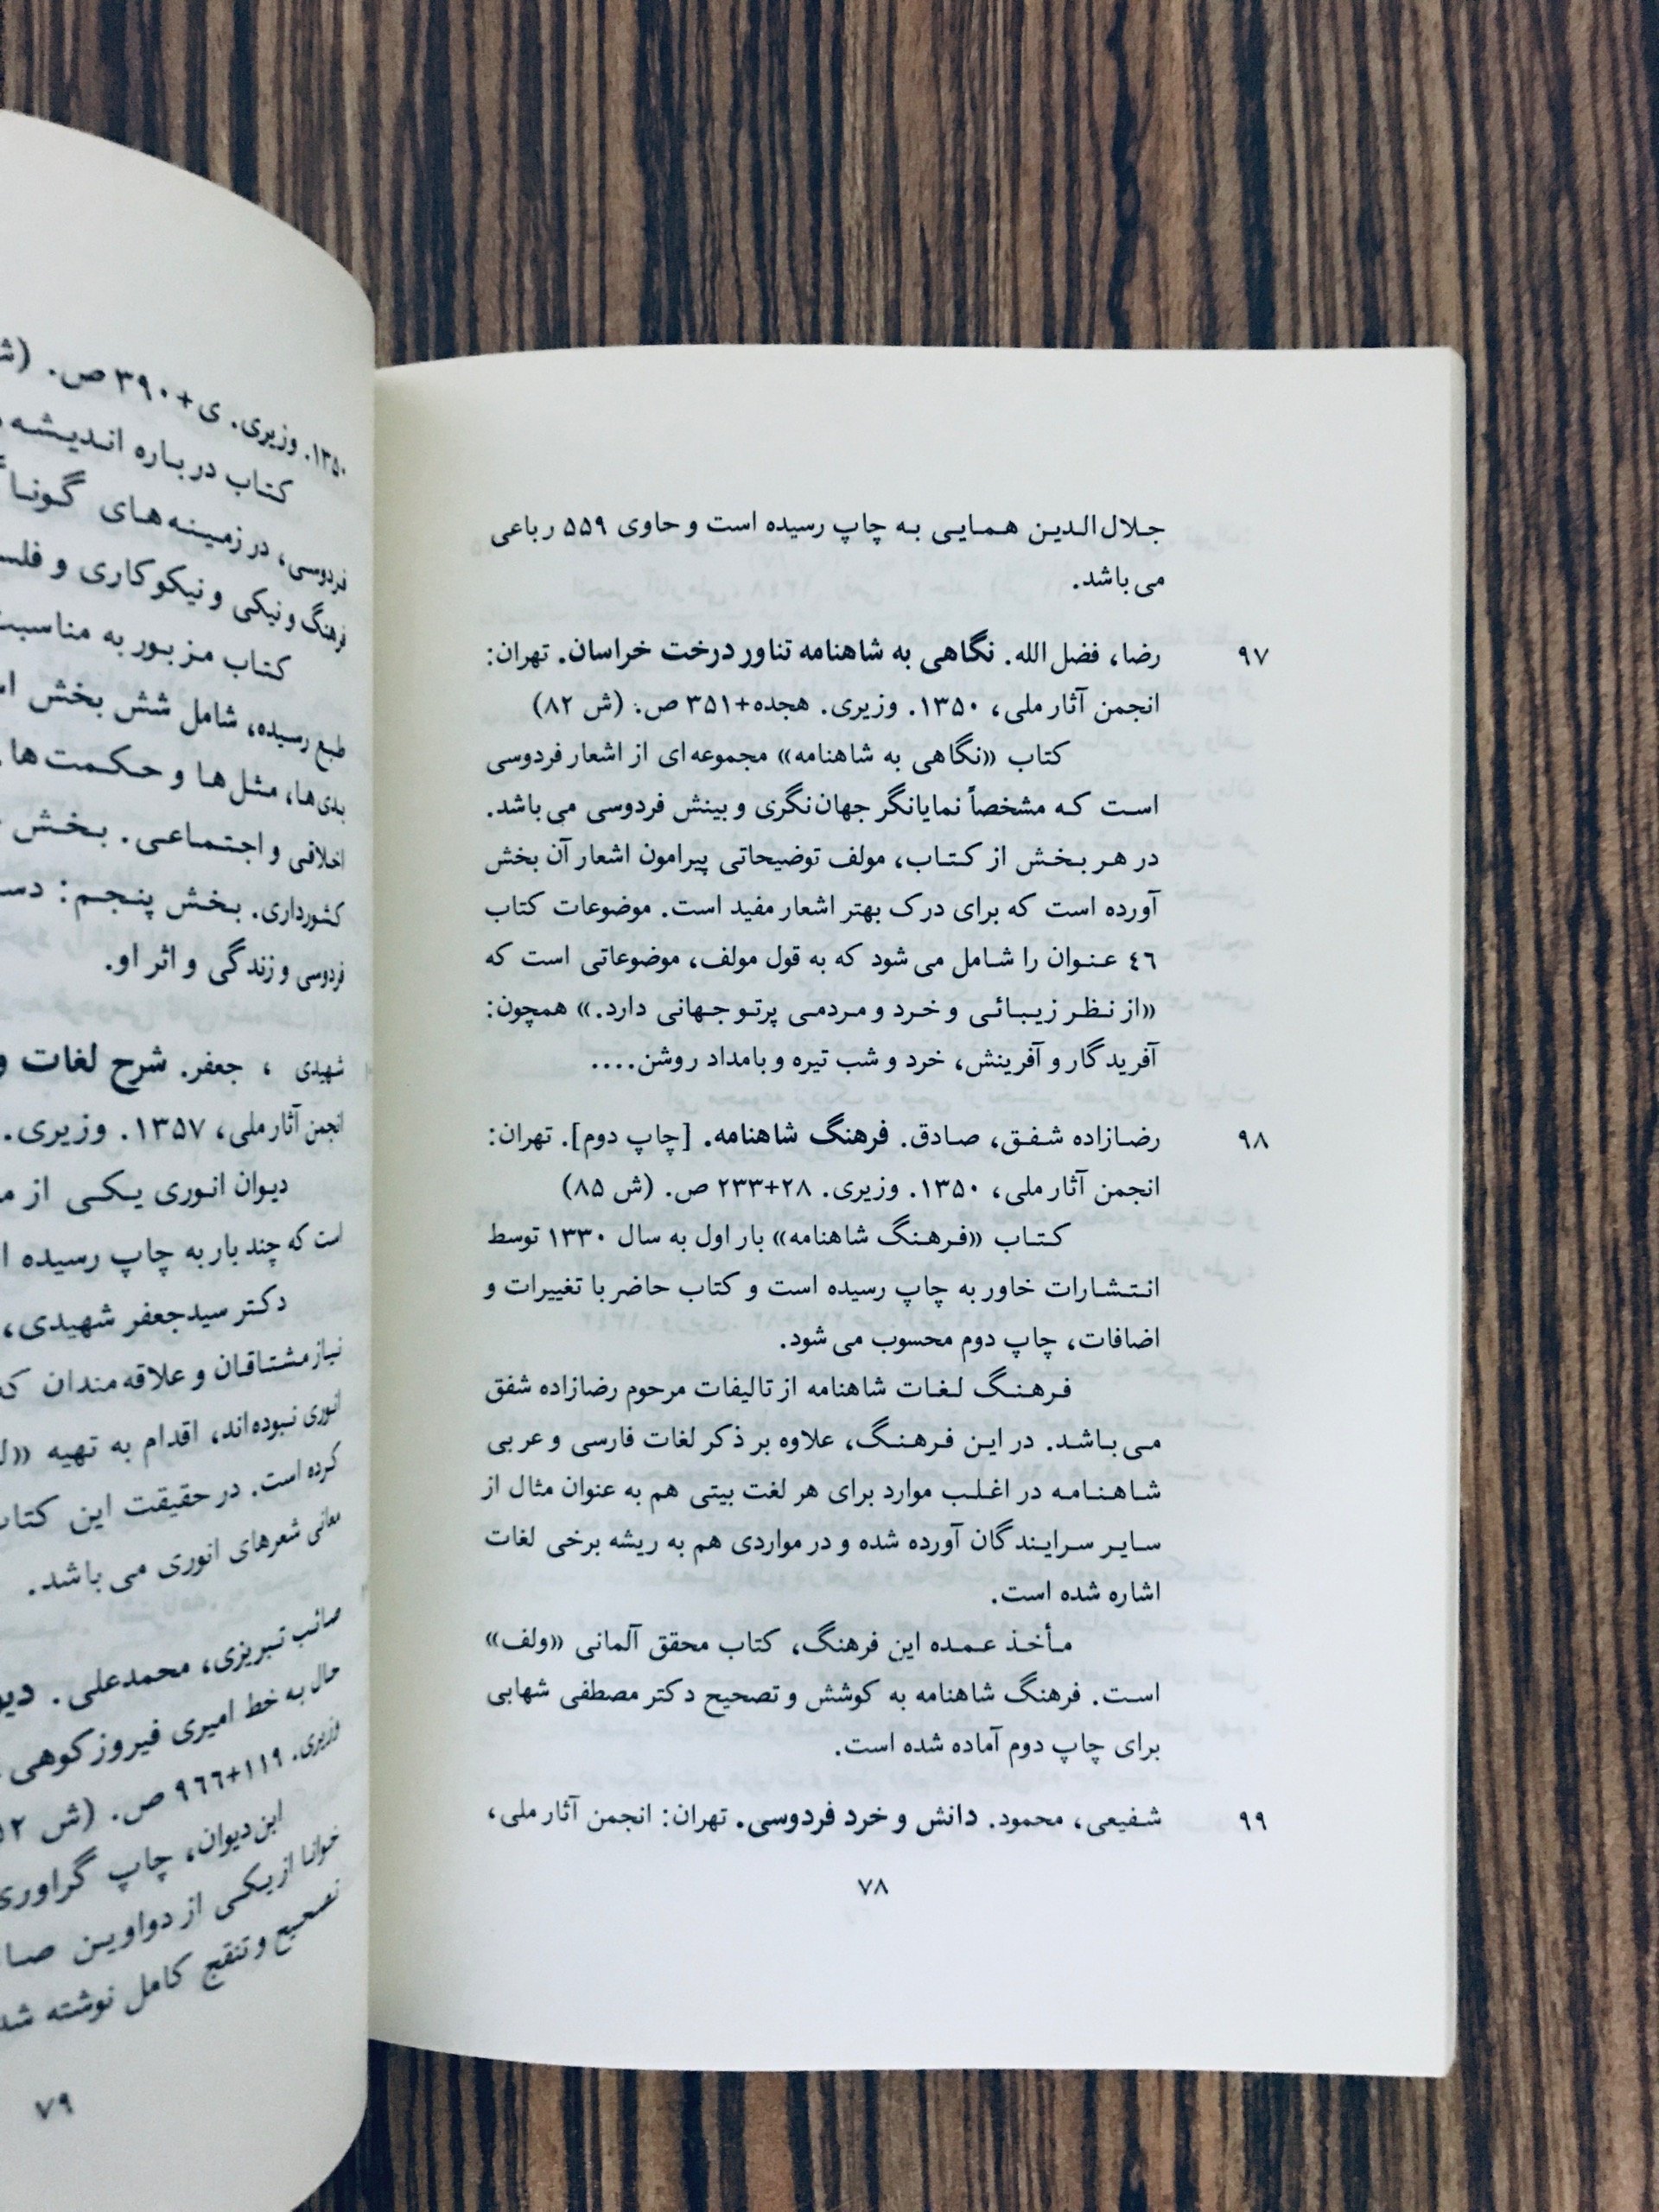 جلال‌الدین همایی به چاپ رسیده است و حاوی ۵۵۹ رباعی
می‌باشد.
۹۷ رضا، فضل‌الله. نگاهی به شاهنامه تناور درخت خراسان. تهران:
انجمن آثار ملی، ۱۳۵۰. وزیری. هجده+۳۵۱ ص. (ش ۸۲)
کتاب «نگاهی به شاهنامه» مجموعه‌ای از اشعار فردوسی
است که مشخصاً نمایانگر جهان‌نگری و بینش فردوسی می‌باشد.
در هر بخش از کتاب، مولف توضیحاتی پیرامون اشعار آن بخش
آورده است که برای درک بهتر اشعار مفید است. موضوعات کتاب
۴۶ عنوان را شامل می‌شود که به قول مولف، موضوعاتی است که
«از نظر زیبائی و خرد و مردمی پرتو جهانی دارد.» همچون:
آفریدگار و آفرینش، خرد و شب تیره و بامداد روشن....
۹۸ رضازاده شفق، صادق. فرهنگ شاهنامه. [چاپ دوم]. تهران:
انجمن آثار ملی، ۱۳۵۰. وزیری. ۲۸+۲۳۳ ص. (ش ۸۵)
کتاب «فرهنگ شاهنامه» بار اول به سال ۱۳۳۰ توسط
انتشارات خاور به چاپ رسیده است و کتاب حاضر با تغییرات و
اضافات، چاپ دوم محسوب می‌شود.
فرهنگ لغات شاهنامه از تالیفات مرحوم رضازاده شفق
می‌باشد. در این فرهنگ، علاوه بر ذکر لغات فارسی و عربی
شاهنامه در اغلب موارد برای هر لغت بیتی هم به عنوان مثال از
سایر سرایندگان آورده شده و در مواردی هم به ریشه برخی لغات
اشاره شده است.
مأخذ عمده این فرهنگ، کتاب محقق آلمانی «ولف»
است. فرهنگ شاهنامه به کوشش و تصحیح دکتر مصطفی شهابی
برای چاپ دوم آماده شده است.
۹۹ شفیعی، محمود. دانش و خرد فردوسی. تهران: انجمن آثار ملی،
۷۸
۱۳۵۰. وزیری. ی+۳۹۰ ص. (ش
کتاب درباره اندیشه
فردوسی، در زمینه‌های
فرهنگ و نیکی و نیکوکاری و
کتاب مزبور به مناسبت
طبع رسیده، شامل شش بخش
بدی‌ها، مثل‌ها و حکمت‌ها
اخلاقی و اجتماعی. بخش
کشورداری. بخش پنجم:
فردوسی و زندگی و اثر او.
شهیدی ، جعفر. شرح لغات و
انجمن آثار ملی، ۱۳۵۷. وزیری.
دیوان انوری یکی از
است که چند بار به چاپ رسیده
دکتر سیدجعفر شهیدی،
نیاز مشتاقان و علاقه‌مندان
انوری نبوده‌اند، اقدام به تهیه
کرده است. در حقیقت این
معانی شعرهای انوری می‌باشد.
صائب تبریزی، محمدعلی.
حال به خط امیری فیروزکوهی
وزیری. ۱۱۹+۹۶۶ ص. (ش
این دیوان، چاپ
خوانا از یکی از دواوین
تصحیح و تنقیح کامل نوشته
۷۹